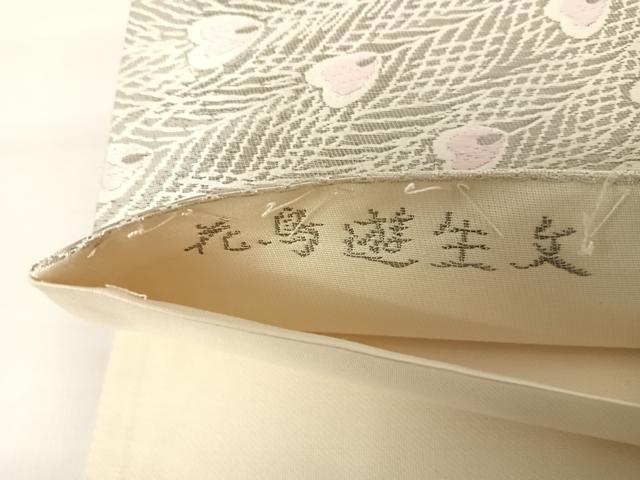 花鳥遊生文